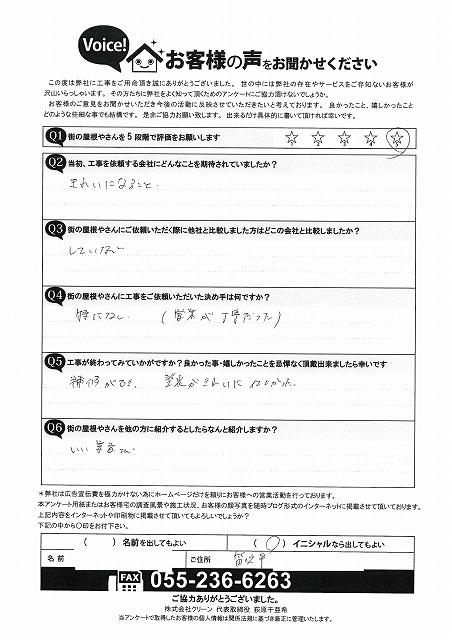 Voice!
お客様の声をお聞かせください
この度は弊社に工事をご用命頂き誠にありがとうございました。世の中には弊社の存在やサービスをご存知ないお客様が
沢山いらっしゃいます。その方たちに弊社をよく知って頂くためのアンケートにご協力頂けないでしょうか。
お客様のご意見をお聞かせいただき今後の活動に反映させていただきたいと考えております。良かったこと、嬉しかったこと
どのような些細な事でも結構です。是非ご協力お願い致します。出来るだけ具体的に書いて頂ければ幸いです。
Q1 街の屋根やさんを5段階で評価をお願いします ☆ ☆ ☆ ☆ ☆
Q2 当初、工事を依頼する会社にどんなことを期待されていましたか？
きれいになること.
Q3 街の屋根やさんにご依頼いただく際に他社と比較しました方はどこの会社と比較しましたか？
していない
Q4 街の屋根やさんに工事をご依頼いただいた決め手は何ですか？
特になし. (営業が丁寧だった)
Q5 工事が終わってみていかがですか？良かった事・嬉しかったことを忌憚なく頂戴出来ましたら幸いです
補修ができ、 塗装がきれいに
Q6 街の屋根やさんを他の方に紹介するとしたらなんと紹介しますか？
いい
＊弊社は広告宣伝費を極力かけない為にホームページだけを頼りにお客様への営業活動を行っております。
本アンケート用紙またはお客様宅の調査風景や施工状況、お客様の顔写真を随時ブログ形式のインターネットに掲載させて頂いております。
上記内容をインターネットや印刷物に掲載させて頂いてもよろしいでしょうか？
下記の中から〇印をお付下さい。
( ) 名前を出してもよい (〇) イニシャルなら出してもよい
名前 ご住所 笛吹市
FAX 055-236-6263
ご協力ありがとうございました。
株式会社クリーン 代表取締役 荻原千亜希
当アンケートで取得したお客様の個人情報は関係法規に基づき厳正に管理いたします。